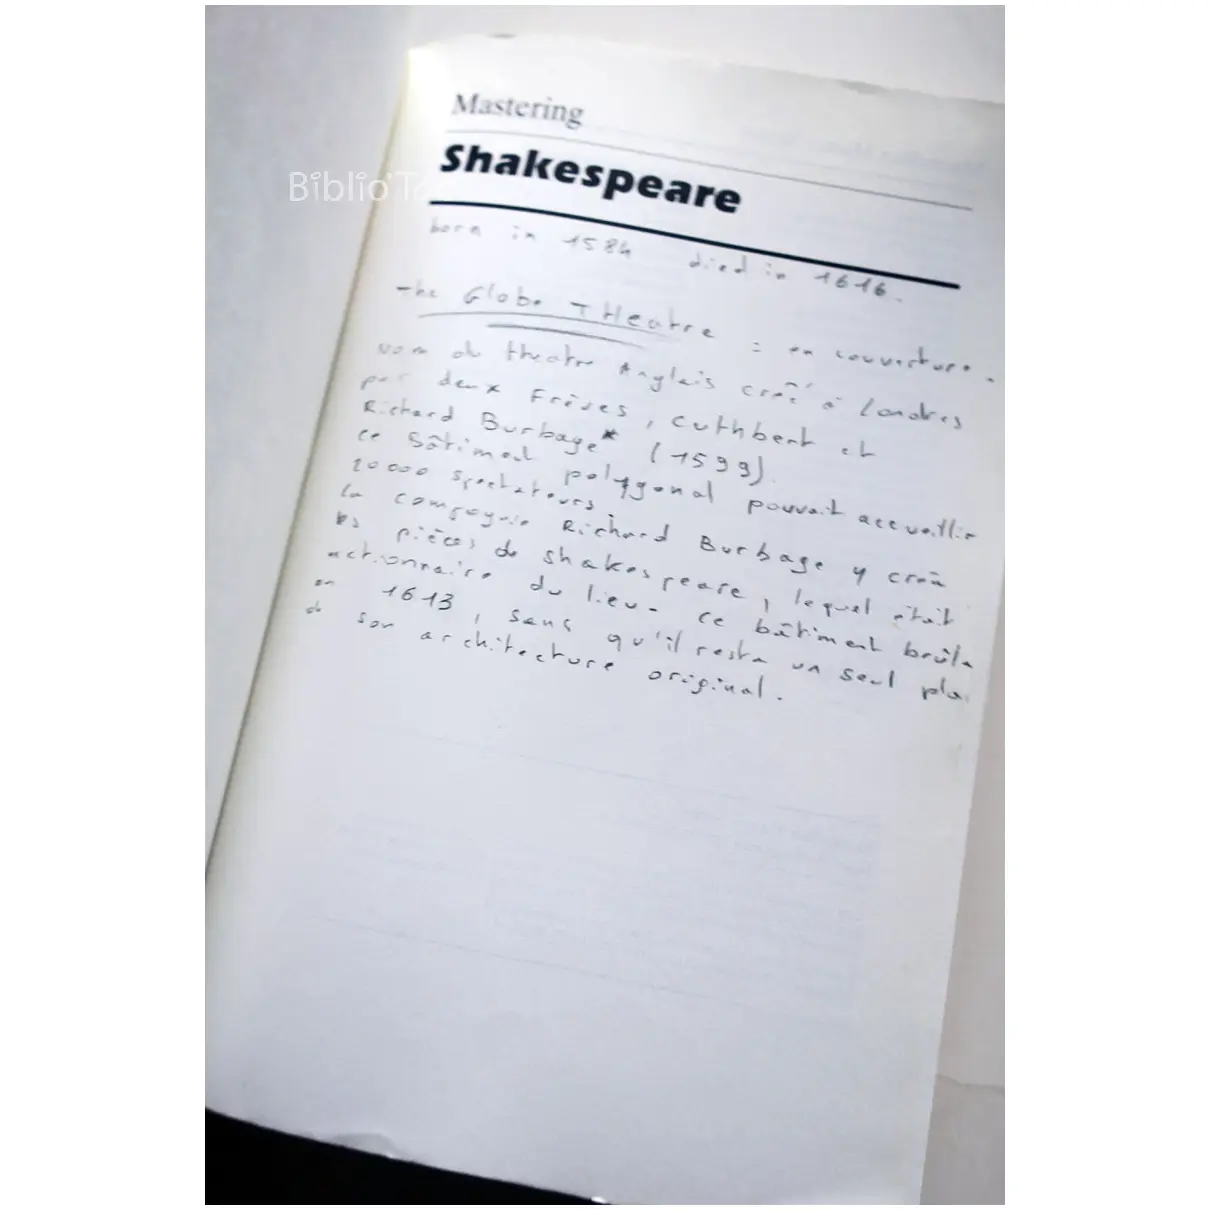 Mastering
Shakespeare
Biblio'T
born in 1584 died in 1616.
The Globe THeatre = en couverture.
Nom du theatre Anglais creé à Londres
par deux Frères, cuthbert et
Richard Burbage* (1599).
ce bâtiment polygonal pouvait accueillir
10000 spectateurs.
la compagnie Richard Burbage y créa
les pièces de shakespeare, lequel était
actionnaire du lieu. ce bâtiment brûla
en 1613, sans qu'il resta un seul plan
de son architecture original.